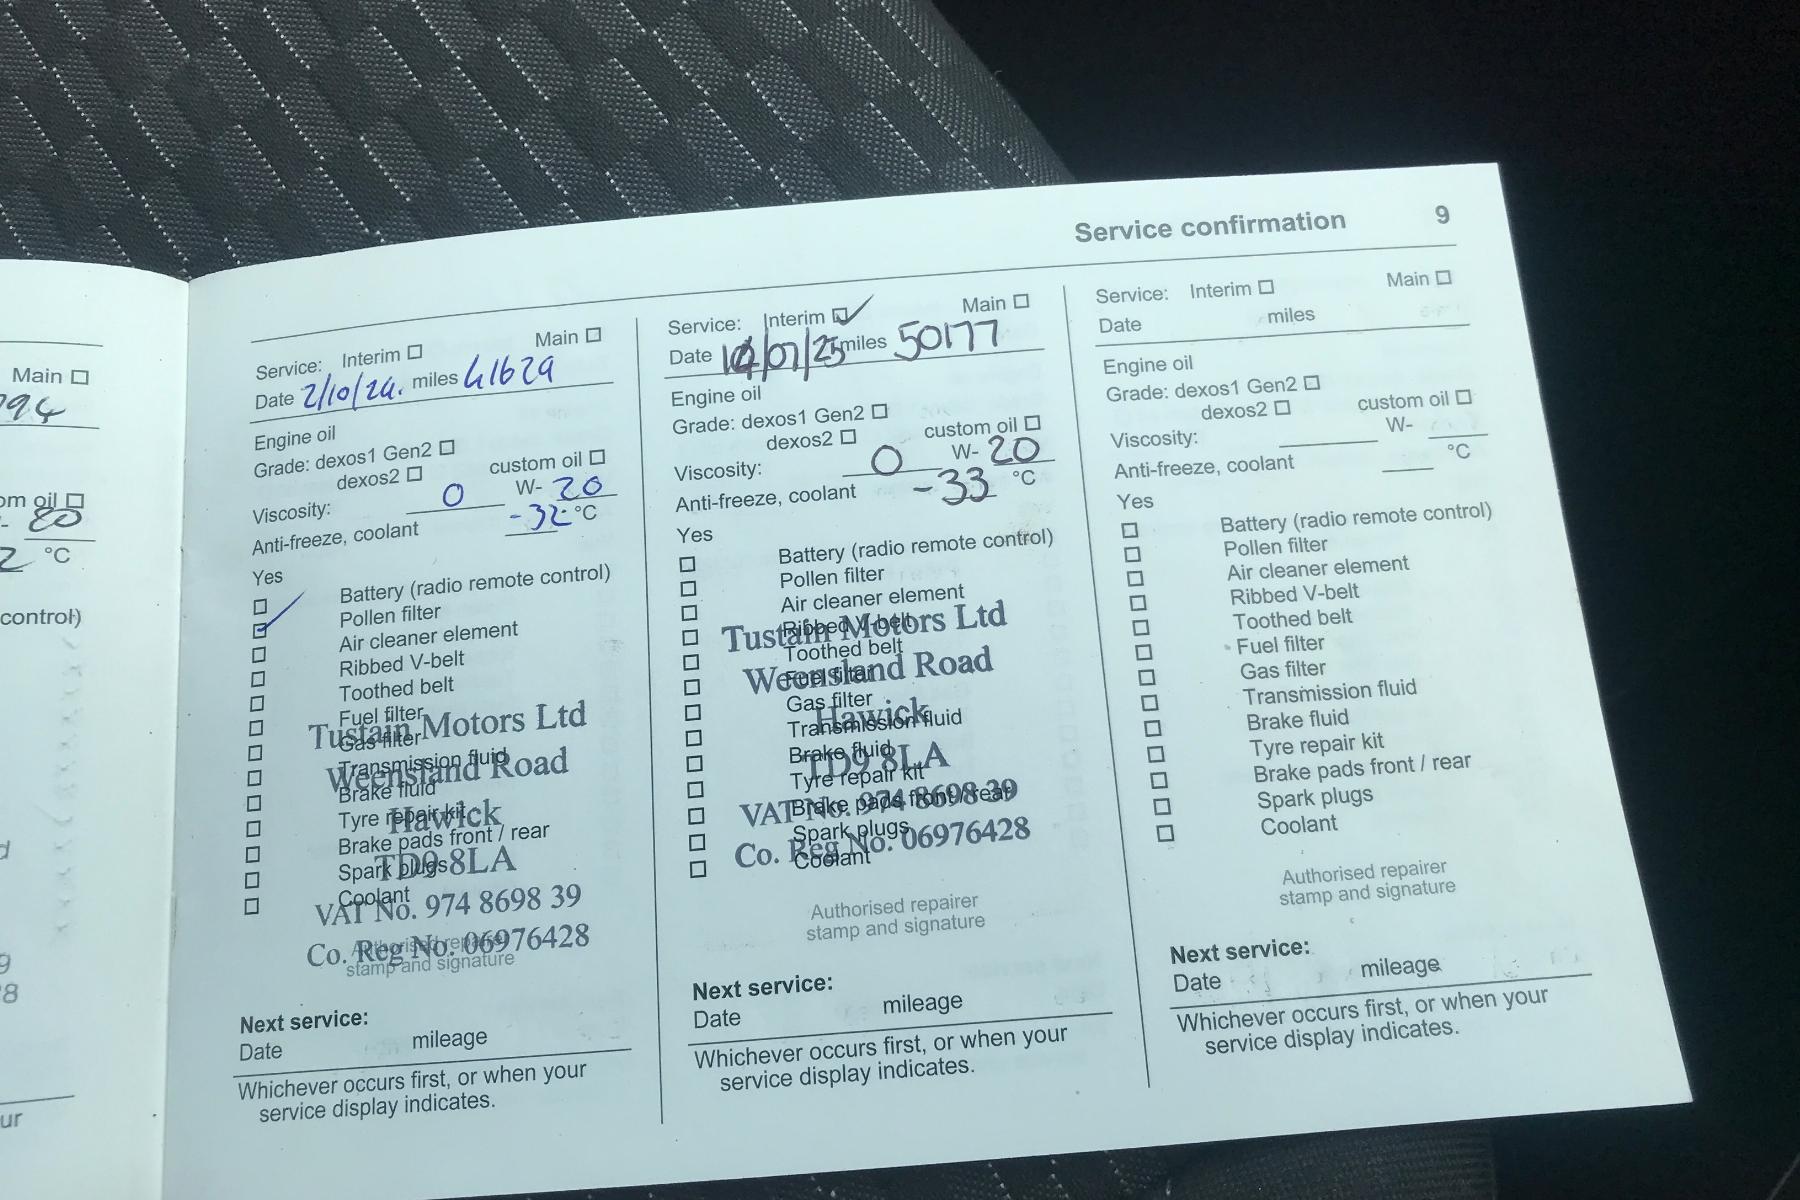 Main
94
om oil
- 20
2 °C
control)
9
8
ur
Service confirmation 9
Service: Interim Main
Date 2/10/24. miles 41629
Engine oil
Grade: dexos1 Gen2
dexos2 custom oil
Viscosity: 0 W- 20
Anti-freeze, coolant -32 °C
Yes
Battery (radio remote control)
Pollen filter
Air cleaner element
Ribbed V-belt
Toothed belt
Fuel filter
Gas filter
Transmission fluid
Brake fluid
Tyre repair kit
Brake pads front / rear
Spark plugs
Coolant
Tustain Motors Ltd
Weensland Road
Hawick
TD9 8LA
VAT No. 974 8698 39
Co. Reg No. 06976428
Authorised repairer
stamp and signature
Next service:
Date mileage
Whichever occurs first, or when your
service display indicates.
Service: Interim Main
Date /07/25 miles 50177
Engine oil
Grade: dexos1 Gen2
dexos2 custom oil
Viscosity: 0 W- 20
Anti-freeze, coolant -33 °C
Yes
Battery (radio remote control)
Pollen filter
Air cleaner element
Ribbed V-belt
Toothed belt
Fuel filter
Gas filter
Transmission fluid
Brake fluid
Tyre repair kit
Brake pads front / rear
Spark plugs
Coolant
Tustain Motors Ltd
Weensland Road
Hawick
TD9 8LA
VAT No. 974 8698 39
Co. Reg No. 06976428
Authorised repairer
stamp and signature
Next service:
Date mileage
Whichever occurs first, or when your
service display indicates.
Service: Interim Main
Date miles
Engine oil
Grade: dexos1 Gen2
dexos2 custom oil
Viscosity: W-
Anti-freeze, coolant °C
Yes
Battery (radio remote control)
Pollen filter
Air cleaner element
Ribbed V-belt
Toothed belt
Fuel filter
Gas filter
Transmission fluid
Brake fluid
Tyre repair kit
Brake pads front / rear
Spark plugs
Coolant
Authorised repairer
stamp and signature
Next service:
Date mileage
Whichever occurs first, or when your
service display indicates.